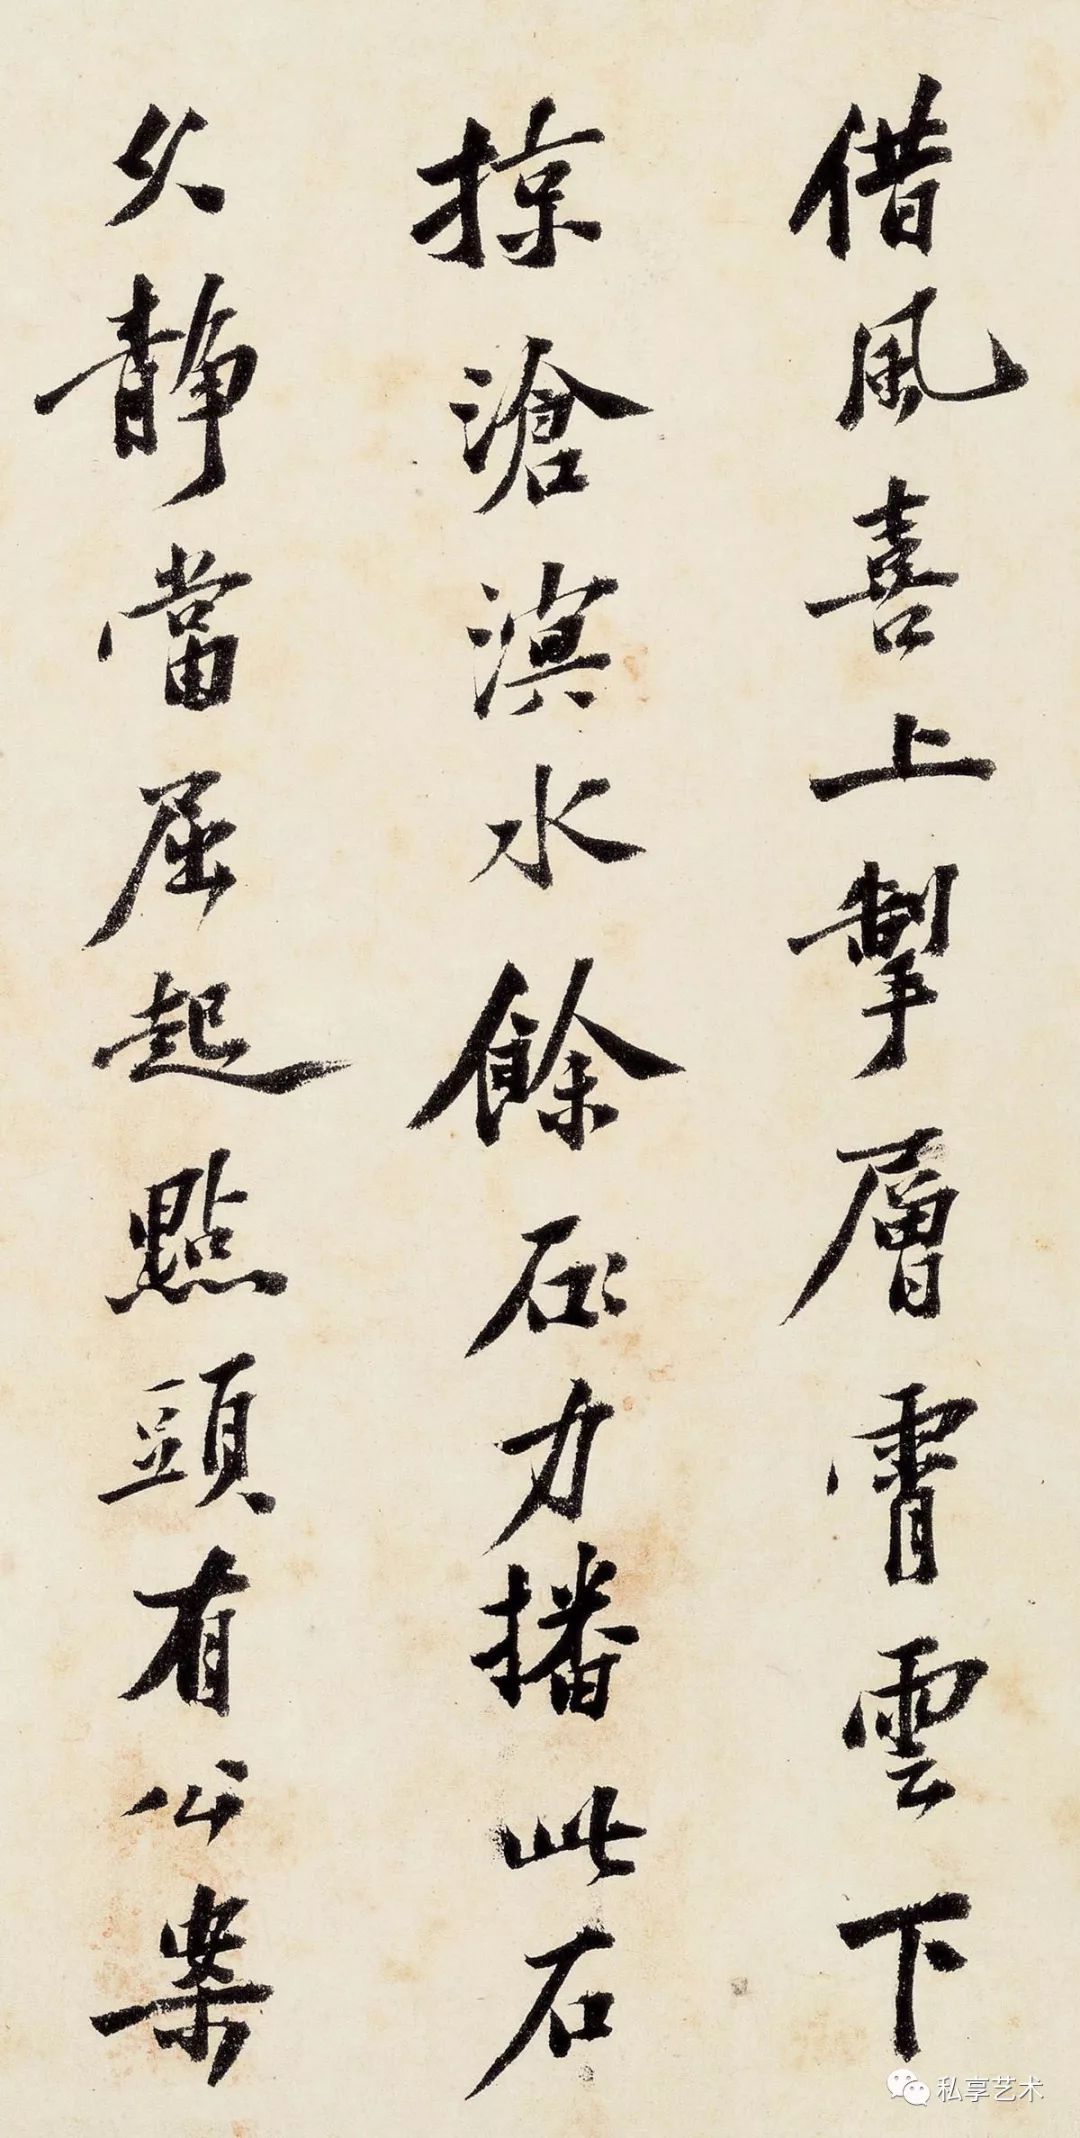 借風喜上掣層霄雲下
掠滄溟水餘石力播此石
久靜當屈起點頭有公案
私享艺术